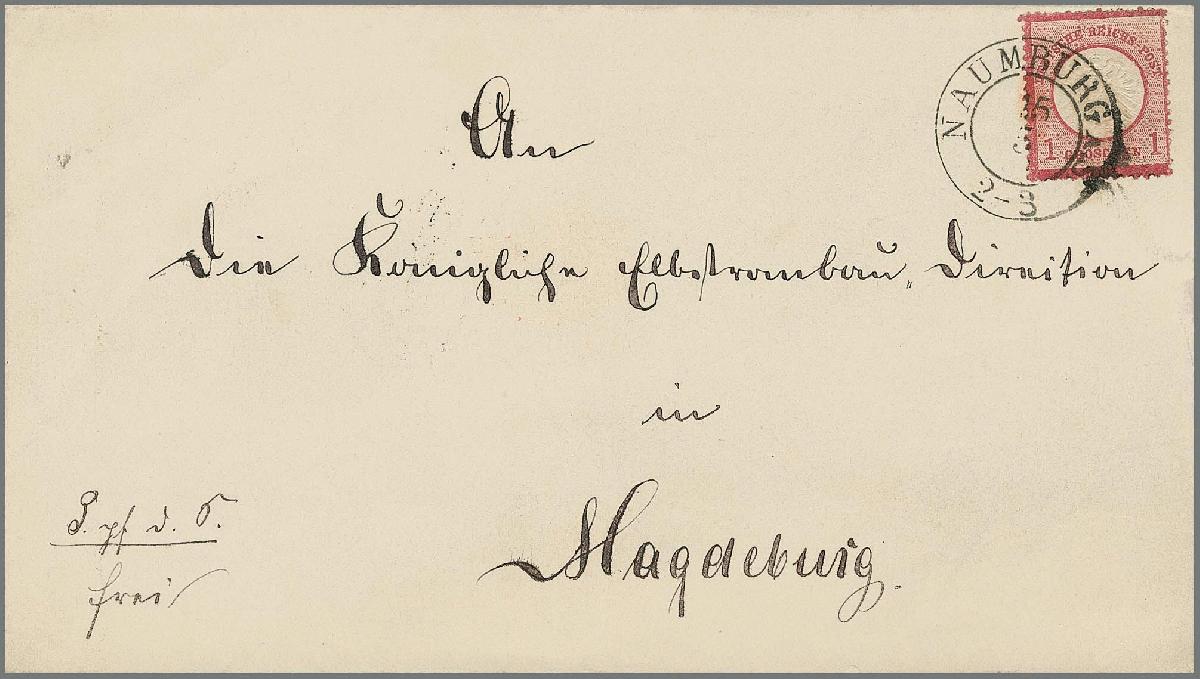 DEUTSCHE REICHS-POST
1 GROSCHEN 1
NAUMBURG A/S
2-3
An
Die Königliche Elbstrombau Direction
in
Magdeburg.
frei